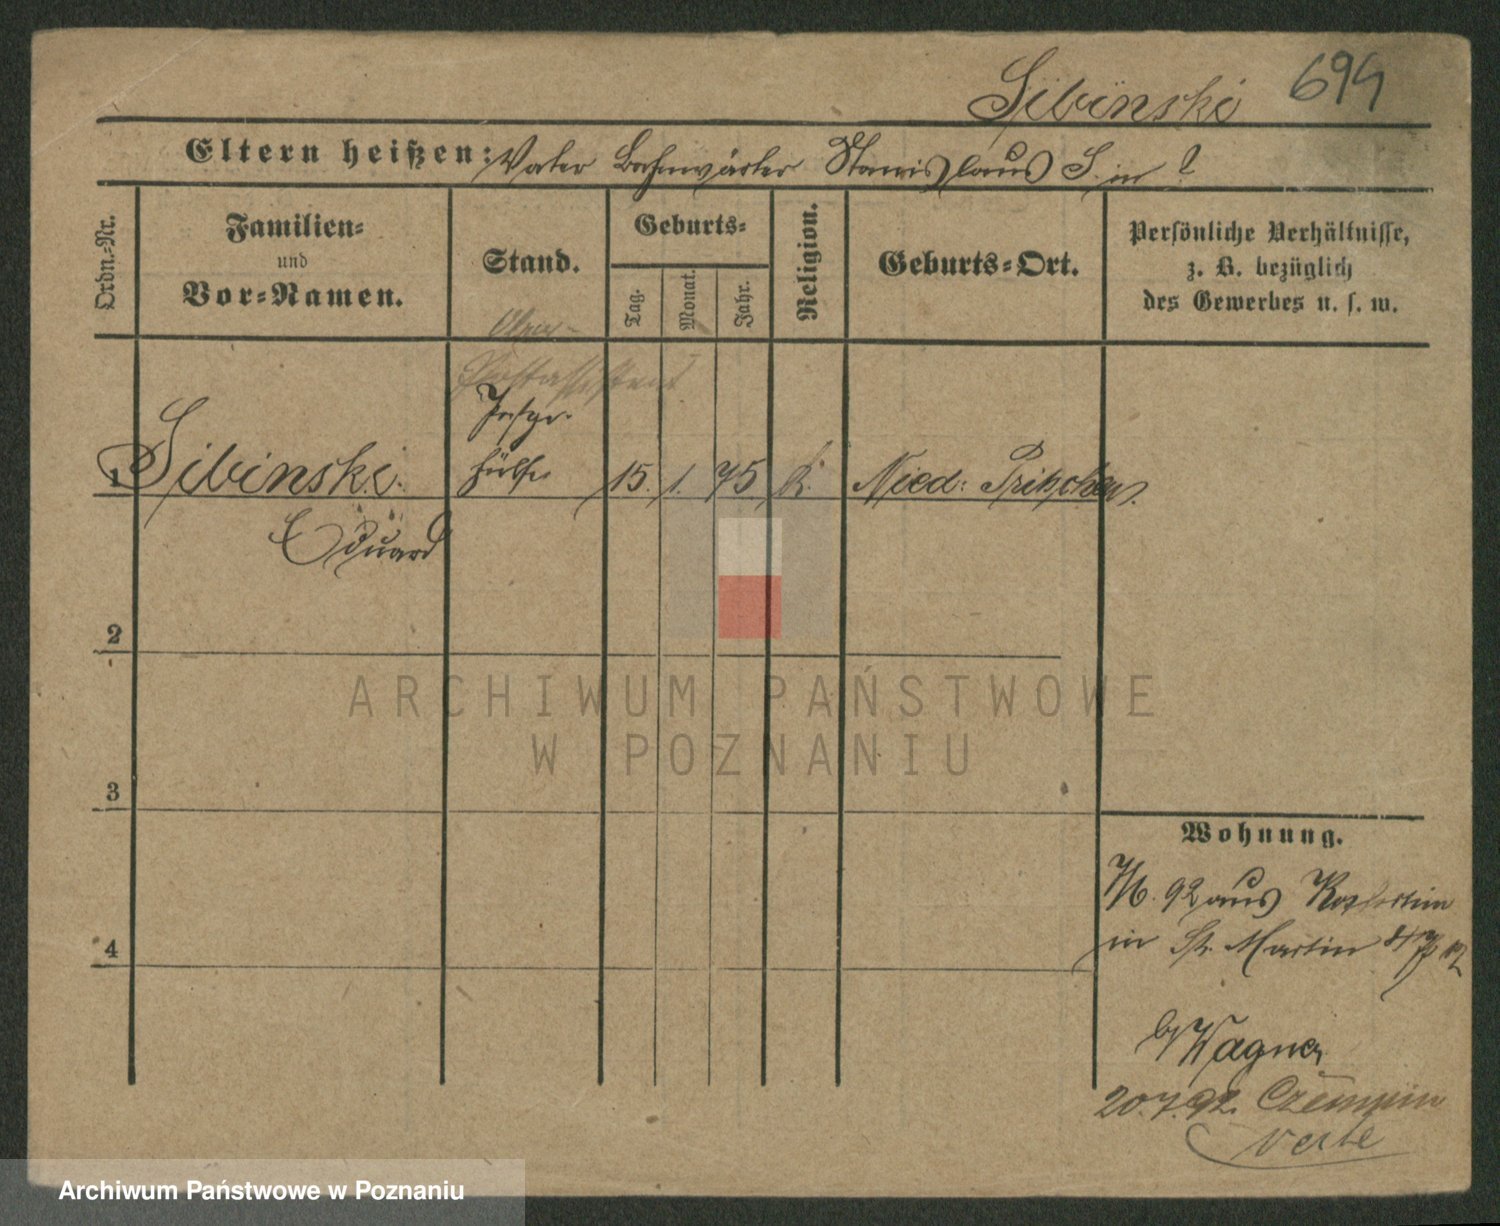 Sibinski 694
Eltern heißen: Vater Bahnwärter Stanislaus S. in ?
Ordn.-Nr.
Familien-
und
Vor-Namen.
Stand.
Geburts-
Tag.
Monat.
Jahr.
Religion.
Geburts-Ort.
Persönliche Verhältnisse,
z. B. bezüglich
des Gewerbes u. s. w.
Postassistent
1 Sibinski 15. 1. 75 k. Nied: Pritschen
Eduard
2
ARCHIWUM PAŃSTWOWE
W POZNANIU
3
Wohnung.
7/6. 92 aus
4
in St. Martin
b/ Wagner
20.7.92. Czempin
verte
Archiwum Państwowe w Poznaniu